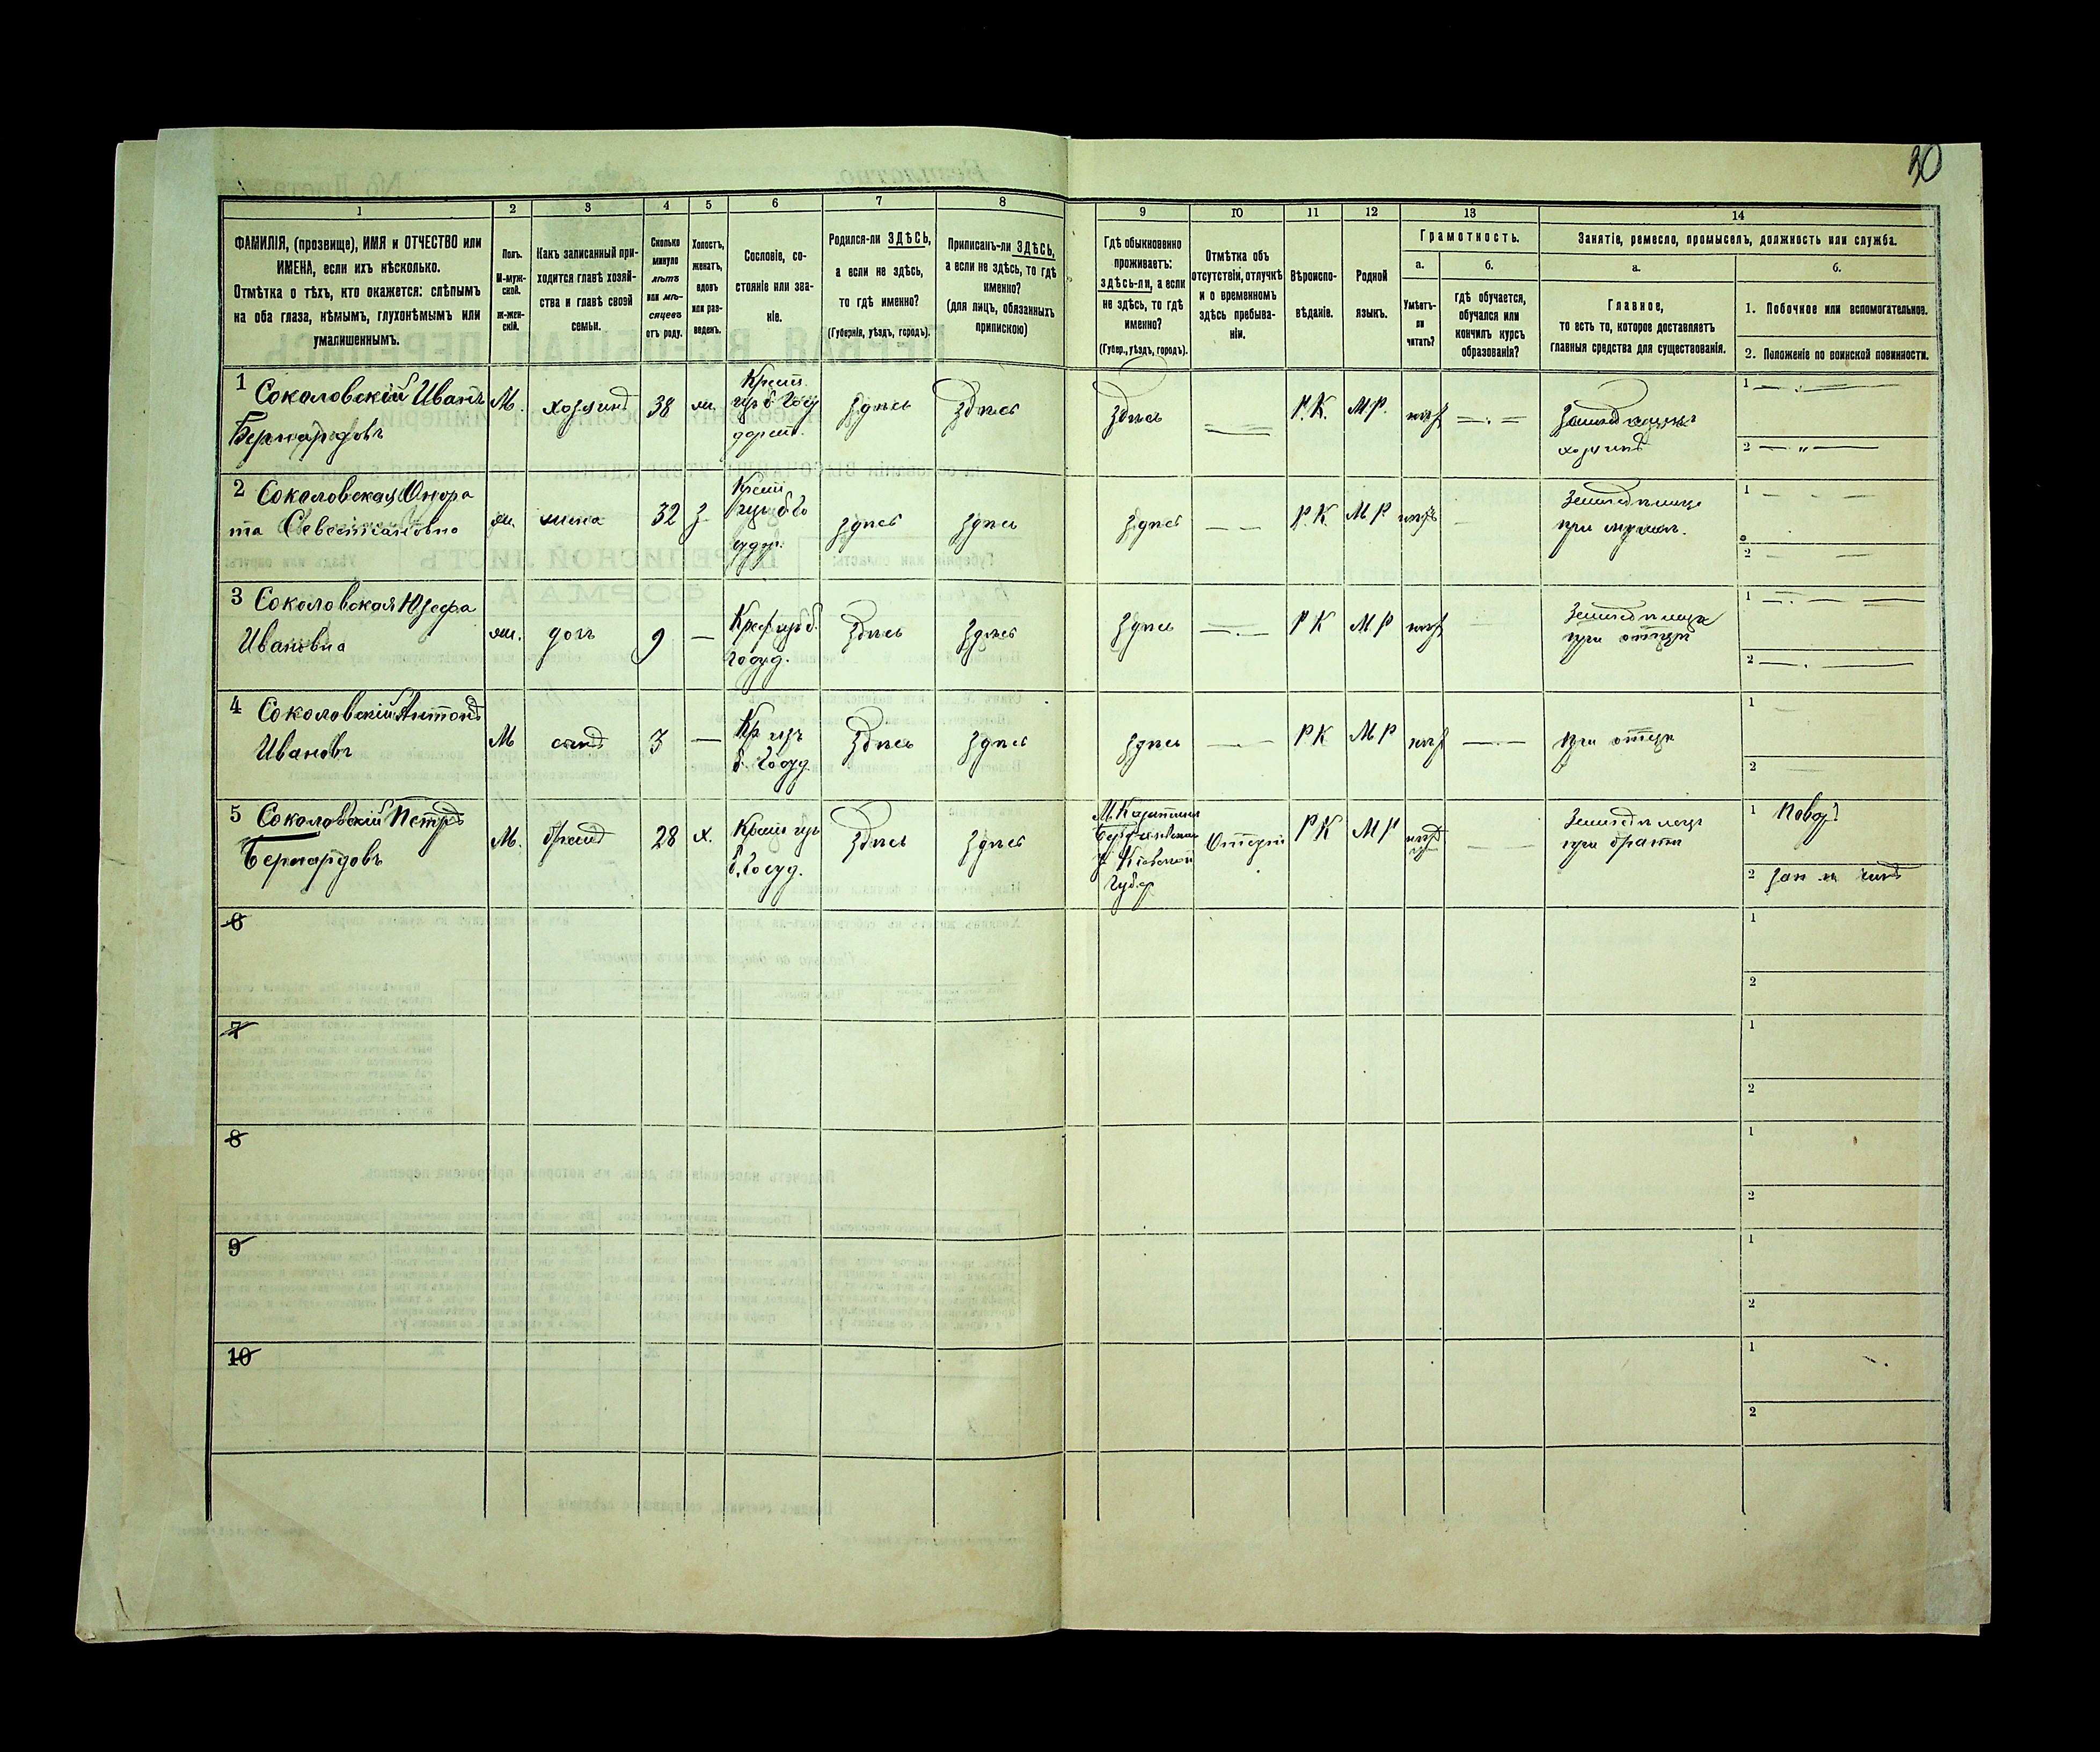 30
1
2
3
4
5
6
7
8
9
10
11
12
13
14
ФАМИЛІЯ, (прозвище), ИМЯ и ОТЧЕСТВО или
ИМЕНА, если ихъ нѣсколько.
Отмѣтка о тѣхъ, кто окажется: слѣпымъ
на оба глаза, нѣмымъ, глухонѣмымъ или
умалишеннымъ.
Полъ.
М-муж-
ской.
Ж-жен-
скій.
Какъ записанный при-
ходится главѣ хозяй-
ства и главѣ своей
семьи.
Сколько
минуло
лѣтъ
или мѣ-
сяцевъ
отъ роду.
Холостъ,
женатъ,
вдовъ
или раз-
веденъ.
Сословіе, со-
стояніе или зва-
ніе.
Родился-ли ЗДѢСЬ,
а если не здѣсь,
то гдѣ именно?
(Губернія, уѣздъ, городъ).
Приписанъ-ли ЗДѢСЬ,
а если не здѣсь, то гдѣ
именно?
(для лицъ, обязанныхъ
припискою)
Гдѣ обыкновенно
проживаетъ:
здѣсь-ли, а если
не здѣсь, то гдѣ
именно?
(Губер., уѣздъ, городъ).
Отмѣтка объ
отсутствіи, отлучкѣ
и о временномъ
здѣсь пребыва-
ніи.
Вѣроиспо-
вѣданіе.
Родной
языкъ.
Грамотность.
а.
Умѣетъ-
ли
читать?
б.
гдѣ обучается,
обучался или
кончилъ курсъ
образованія?
Занятіе, ремесло, промыселъ, должность или служба.
а.
Главное,
то есть то, которое доставляетъ
главныя средства для существованія.
б.
1. Побочное или вспомогательное.
2. Положеніе по воинской повинности.
1 Соколовскій Иванъ
Бернардовъ
М.
хозяинъ
38
жн.
Крест.
изъ б. Госу
дарств.
Здѣсь
Здѣсь
Здѣсь
Р.К.
М Р.
нѣтъ
Земледѣлецъ
хозяинъ
1
2
2 Соколовская Онора
та Севастіановна
жн.
жена
32
З
Крест
изъ б Го
судар.
здѣсь
здѣсь
здѣсь
Р К
М Р
нѣтъ
Земледѣлица
при мужѣ.
1
2
3 Соколовская Юзефа
Ивановна
жн.
дочь
9
Крест изъ б.
Госуд.
Здѣсь
Здѣсь
здѣсь
Р К
М Р
нѣтъ
Земледѣлица
при отцѣ
1
2
4 Соколовскій Антонъ
Ивановъ
М
сынъ
3
Кр изъ
б. Госуд
Здѣсь
здѣсь
здѣсь
Р К
М Р
нѣтъ
При отцѣ
1
2
5 Соколовскій Петръ
Бернардовъ
М.
братъ
28
х.
Крест изъ
б. Госуд.
Здѣсь
здѣсь
М. Казатинъ
Бердичевскаго
у Кіевской
Губер
Р К
М Р
нѣтъ
Земледѣлецъ
при братѣ
1
2
6
1
2
7
1
2
8
1
2
9
1
2
10
1
2